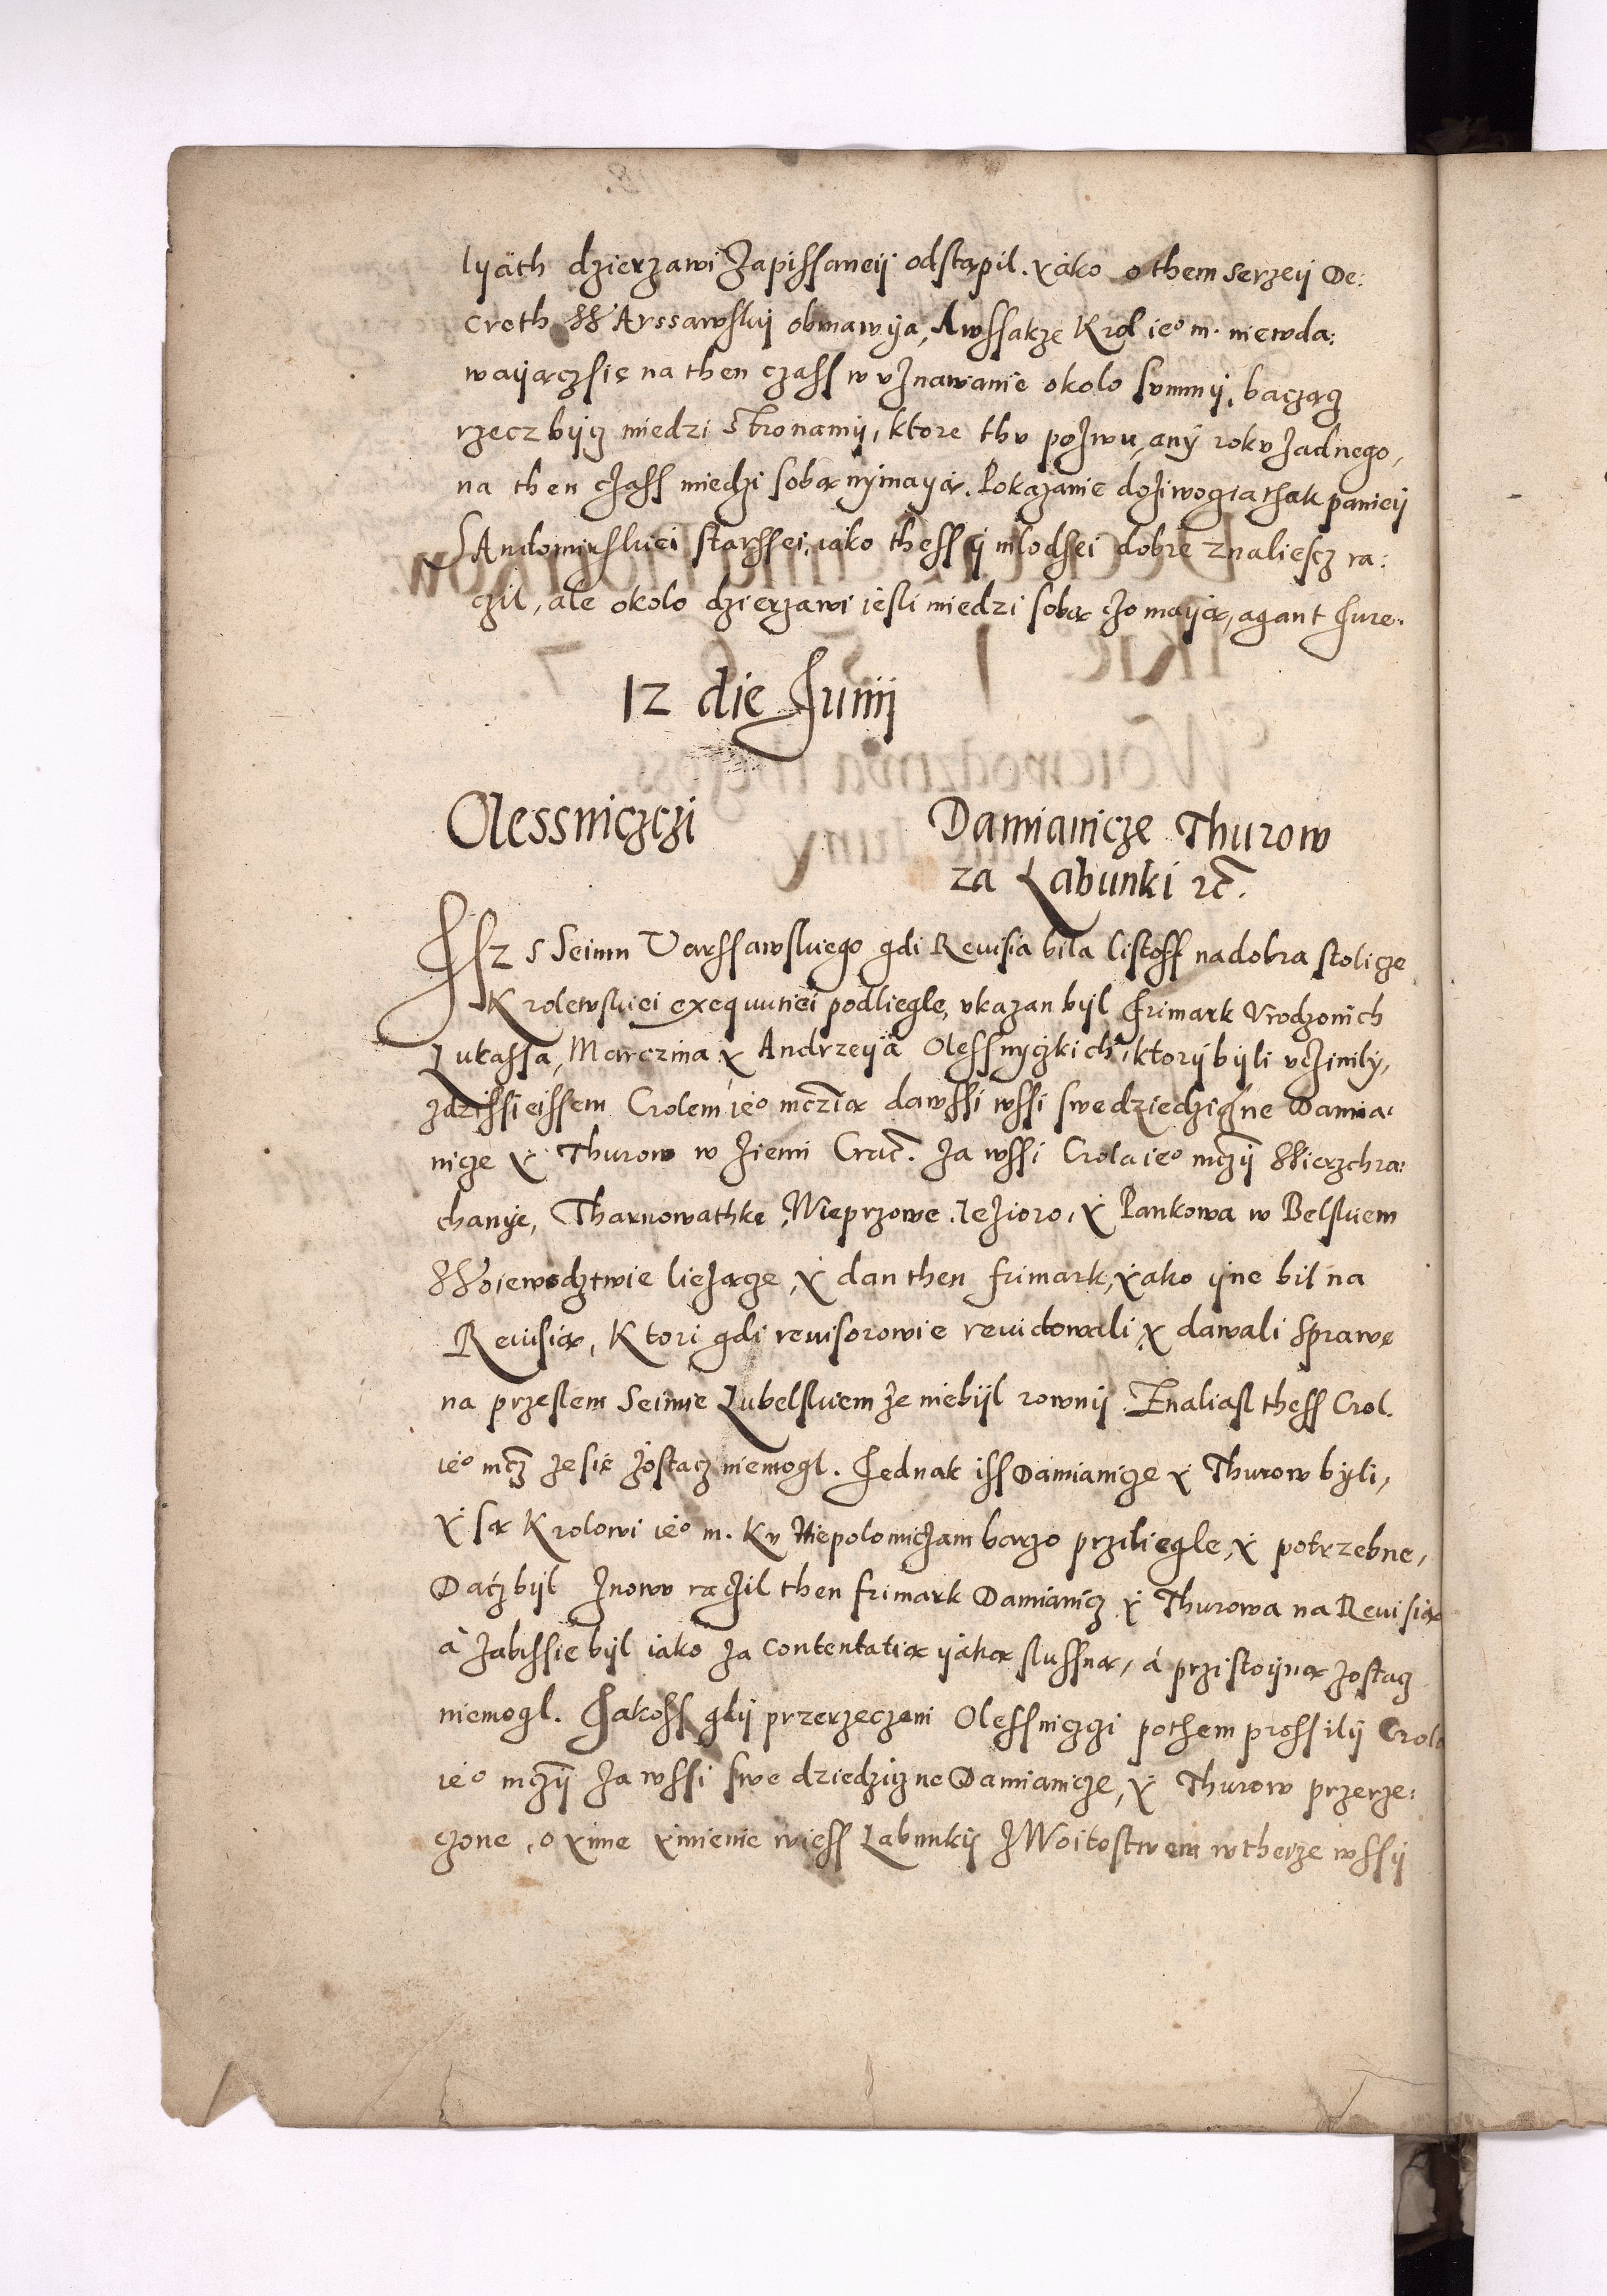 lyath dzierzawi zapissaneÿ odstąpil. ẏako o them serzeÿ De:
creth WArssawskÿ obmawÿa, Awssakze Krol ie° m. niewda:
waÿączsię na then czass w vznawanie okolo summÿ, bacząc
rzecz bÿcz miedzi stronamÿ, ktore thv pozwu, anÿ rokv zadnego,
na then czass miedzi sobą nÿmaÿą. Pokazanie doziwocia thak panieÿ
SAndomirskiei starssei, iako thess ÿ mlodssei dobre znaliescz ra:
czil, ale okolo dzierzawi iesli miedzi sobą czo maÿą, agant Jure.
12 die Junÿ
Olessniczczi
Damianicze Thurow
za Łabunki rc.
Isz s Seimu Varssawskiego gdi Reuisia bila listoff na dobra stolicze
Krolewskiei exequutiei podliegle, vkazan bÿl frimark Vrodzonich
Lukassa, Marczina ẏ Andrzeÿa Olessnyczkich, ktorÿ bÿli vczinilÿ,
zdzissieissem Crolem ie° mczią dawssi wssi swe dziedziczne Damia:
nicze ẏ Thurow w ziemi Crac. za wssi Crola ie° mczÿ Wierzchra:
chanÿe, Tharnowathkę, Wieprzowe Iezioro, ẏ Pankowa w Belskiem
Woiewodztwie liezące, ẏ dan then frimark, ẏako ÿne bil na
Reuisią, Ktori gdi reuisorowie reuidowali ẏ dawali sprawę
na przeslem Seimie Lubelskiem że niebÿl rownÿ. Znaliasl thess Crol.
ie° mcz ze się zostacz niemogl. Jednak iss Damianicze ẏ Thurow bÿli,
ẏ są Krolowi ie° m. Kv Niepolomiczam barzo prziliegle, ẏ potrzebne,
Dacz bÿl znowv raczil then frimark Damianicz ẏ Thurowa na Reuisią
a zabissie bÿl iako za contentatią ÿaką slussną, á przistoÿną zostacz
niemogl. Jakoss gdÿ przerzeczeni Olessniczczi pothem prossilÿ Crola
ie° mczÿ za wssi swe dziedziczne Damianicze, ẏ Thurow przerze:
czone, o ẏnne ẏmienie wiess Labunkÿ z Woitostwem w theyze wssÿ